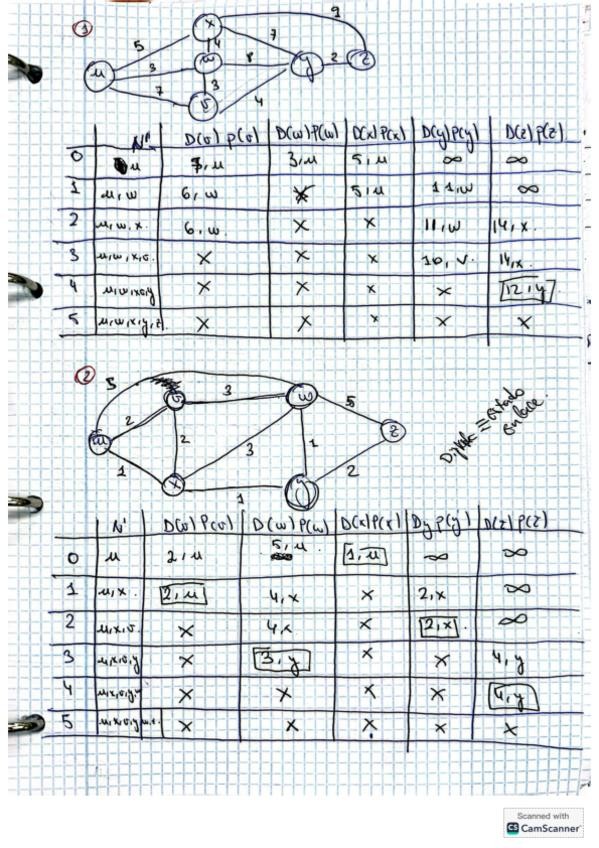 1
9
x
7
5
4
u
3
w
8
y
2
z
7
3
v
4
N' D(v) p(v) D(w) P(w) D(x) P(x) D(y) P(y) D(z) p(z)
0 u 7, u 3, u 5, u ∞ ∞
1 u, w 6, w X 5, u 11, w ∞
2 u, w, x. 6, w. X x 11, w 14, x.
3 u, w, x, v. X X x 10, v. 14, x.
4 u, w, x, v, y X X x x 12, y
5 u, w, x, y, z. X X x X x
2
5
v
3
w
5
2
u
2
3
1
z
1
x
1
y
2
Dijkstra ≡ estado
enlace.
N' D(v) P(v) D(w) P(w) D(x) P(x) Dy p(y) D(z) p(z)
0 u 2, u 5, u. 1, u ∞ ∞
1 u, x. 2, u 4, x x 2, x ∞
2 u, x, v. x 4, x x 2, x. ∞
3 u, x, v, y x 3, y x x 4, y
4 u, x, v, y, w x x x x 4, y
5 u, x, v, y, w, z. x x x x x
Scanned with
CS CamScanner